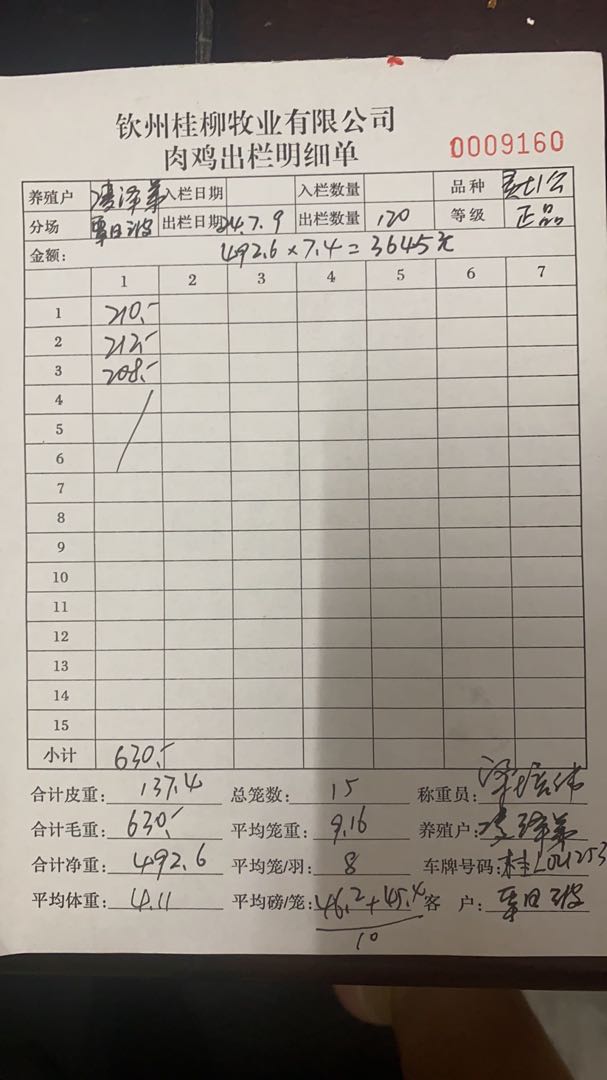 钦州桂柳牧业有限公司
肉鸡出栏明细单
0009160
养殖户 入栏日期 入栏数量 品种
分场 覃日 出栏日期 24.7.9 出栏数量 120 等级 正品
金额: 492.6×7.4=3645元
1 2 3 4 5 6 7
1 210.-
2 212.-
3 208.-
4
5
6
7
8
9
10
11
12
13
14
15
小计 630.-
合计皮重: 137.4 总笼数: 15 称重员:
合计毛重: 630.- 平均笼重: 9.16 养殖户:
合计净重: 492.6 平均笼/羽: 8 车牌号码: 桂L
平均体重: 4.11 平均磅/笼: 46.2+45.4 客 户: 覃日
10